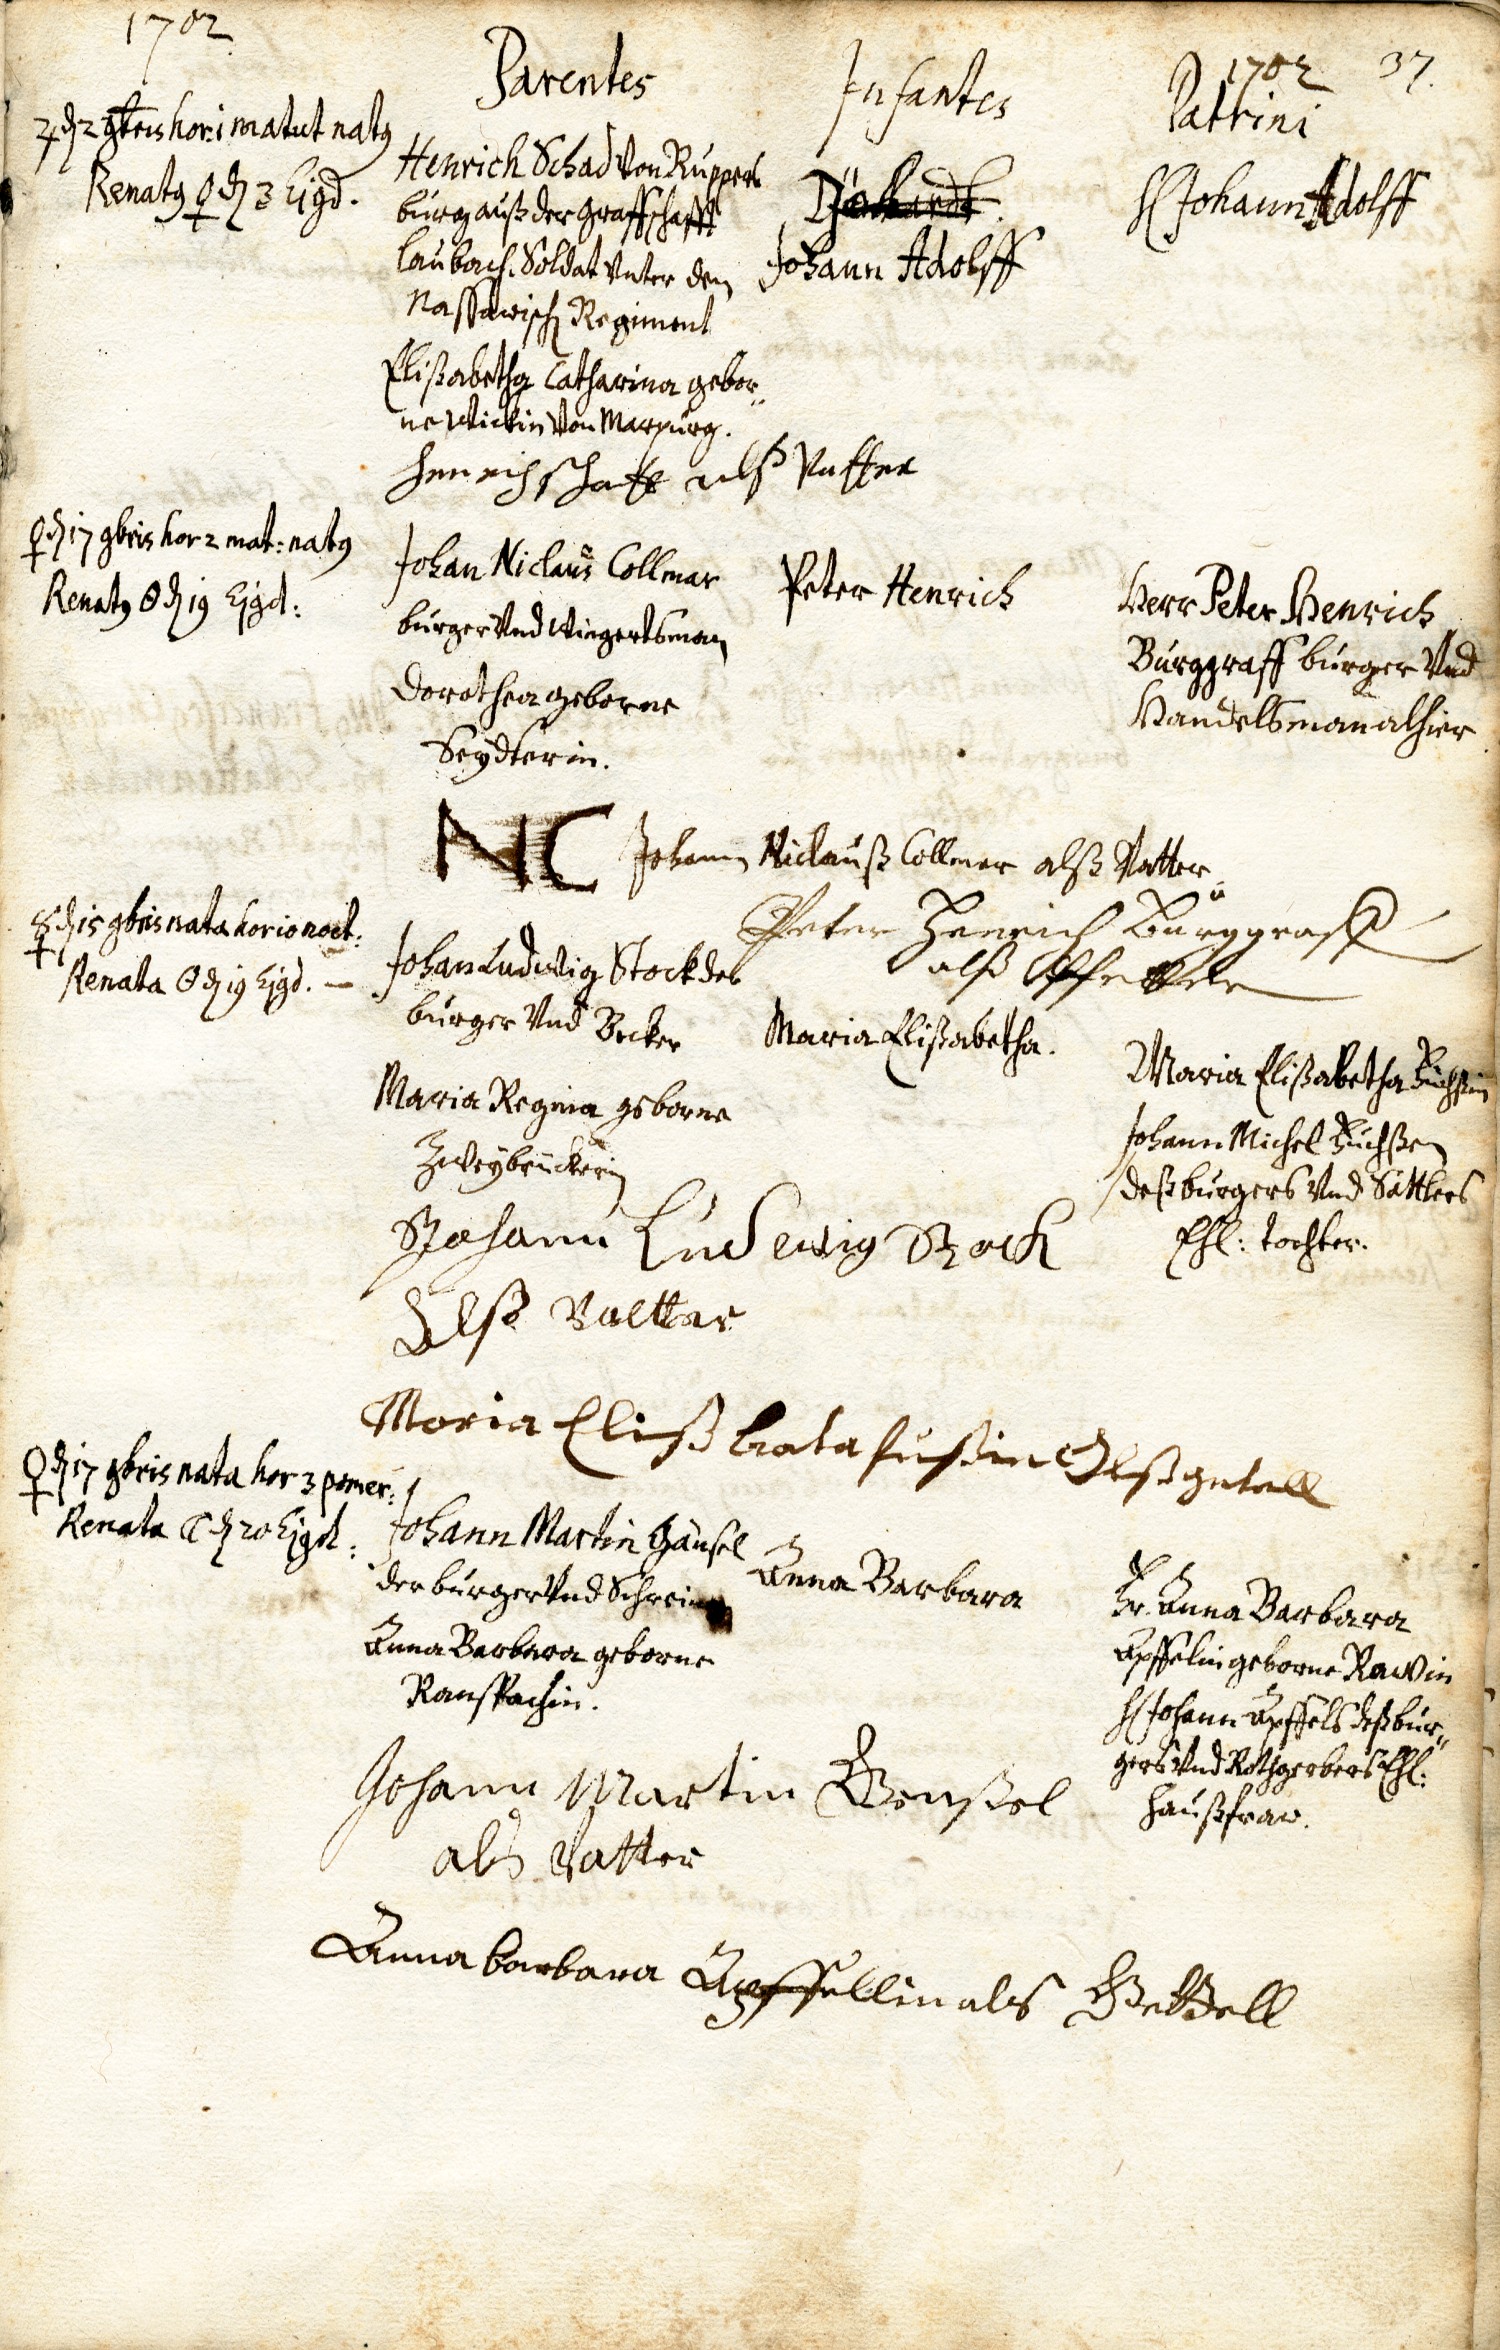 1702
Parentes
Infantes
1702
37.
Patrini
♃ d 2 9bris hor: 1 matut natꝰ
Renatꝰ ♀ d 3 Ejsd.
Henrich Schad Von Ruppers
burg auß der Graffschafft
Laubach. Soldat Unter dem
Nassawisch Regiment
Elißabetha Catharina gebor„
ne Wickin Von Marpurg.
Johann Adolff
H Johann Adolff
Henrich schatt alß Vatter
♀ d 17 9bris hor 2 mat: natꝰ
Renatꝰ ☉ d 19 Ejsd:
Johan Niclaus Collmar
burger Und Wingertsman
Dorothea geborne
Seydlerin.
Peter Henrich
Herr Peter Henrich
Burggraff burger Und
Handelsman alhier
NC Johann Niclauß Collmer alß Vatter
Peter Henrich Burggraff
alß Pfetter
☿ d 15 9bris nata hor 10 noct:
Renata ☉ d 19 Ejsd. —
Johan Ludwig Stock der
burger Und Becker
Maria Regina geborne
Zweybrückerin
Maria Elißabetha.
Maria Elißabetha Fuchßin
Johann Michel Fuchßen
deß burgers Und Sattlers
Ehl: tochter.
Johann Ludewig Stock
Alß Vatter
Moria Elißbata fußin Alß getell
♀ d 17 9bris nata hor 3 pomer:
Renata ☾ d 20 Ejsd:
Johann Martin Gänsel
der burger Und Schreiner
Anna Barbara geborne
Ranspachin.
Anna Barbara
Fr. Anna Barbara
Apffelin geborne Rawin
H Johann Apffels deß bur„
gers Und Rothgerbers Ehl:
haußfraw.
Johann Martin Genßel
als Vatter
Anna barbara Apffellin als Gettell